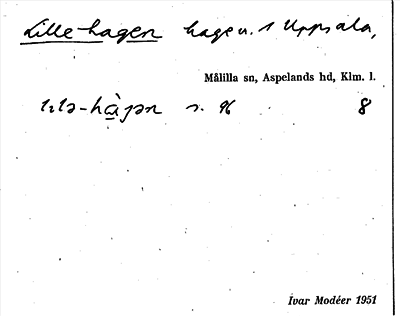 Lille-hagen hage u. 1 Uppsala,
Målilla sn, Aspelands hd, Klm. l.
s. 96 8
Ivar Modéer 1951